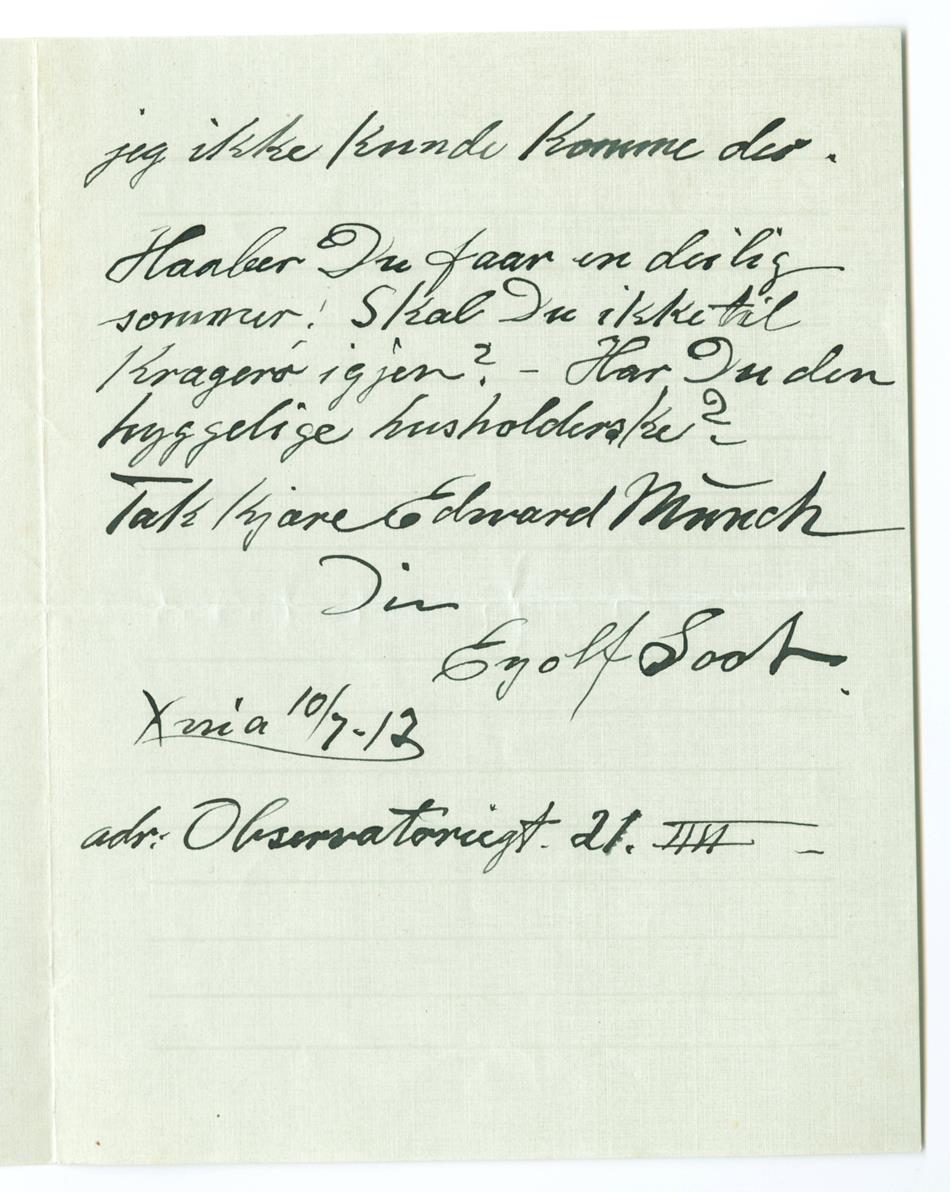 jeg ikke kunde komme der.
Haaber Du faar en deilig
sommer! Skal Du ikke til
Kragerø igjen? – Har Du den
hyggelige husholderske? –
Tak kjære Edward Munch
Din
Eyolf Soot.
Xnia 10/7-12
adr: Observatoriegt. 21. IIII –